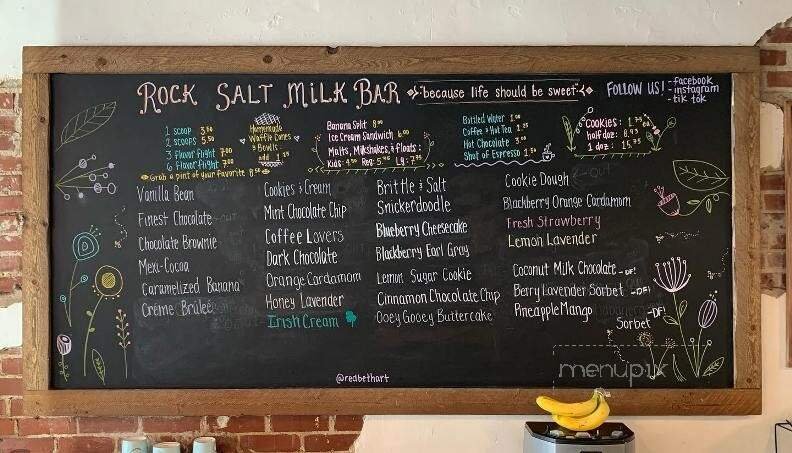 Rock Salt Milk Bar
"because life should be sweet"
Follow us!
- facebook
- instagram
- tik tok
1 scoop
2 scoops 5.50
3 flavor flight 7.00
6 flavor flight
Grab a pint of your favorite 8.50
Homemade
Waffle Cones
& Bowls
add 1.25
Banana Split
Ice Cream Sandwich 6.00
Malts, Milkshakes, & floats:
Kids: Reg: Lg:
Bottled Water
Coffee & Hot Tea 1.25
Hot Chocolate
Shot of Espresso
Cookies: 1.75 ea
half doz:
1 doz:
Vanilla Bean
Finest Chocolate
Chocolate Brownie
Mexi-Cocoa
Caramelized Banana
Créme Brûleé
Cookies & Cream
Mint Chocolate Chip
Coffee Lovers
Dark Chocolate
Orange Cardamom
Honey Lavender
Irish Cream
Brittle & Salt
Snickerdoodle
Blueberry Cheesecake
Blackberry Earl Gray
Lemon Sugar Cookie
Cinnamon Chocolate Chip
Ooey Gooey Buttercake
Cookie Dough
Blackberry Orange Cardamom
Fresh Strawberry
Lemon Lavender
Coconut Milk Chocolate -DF!
Berry Lavender Sorbet -DF!
Pineapple Mango
Sorbet -DF!
@redbethart
menupix